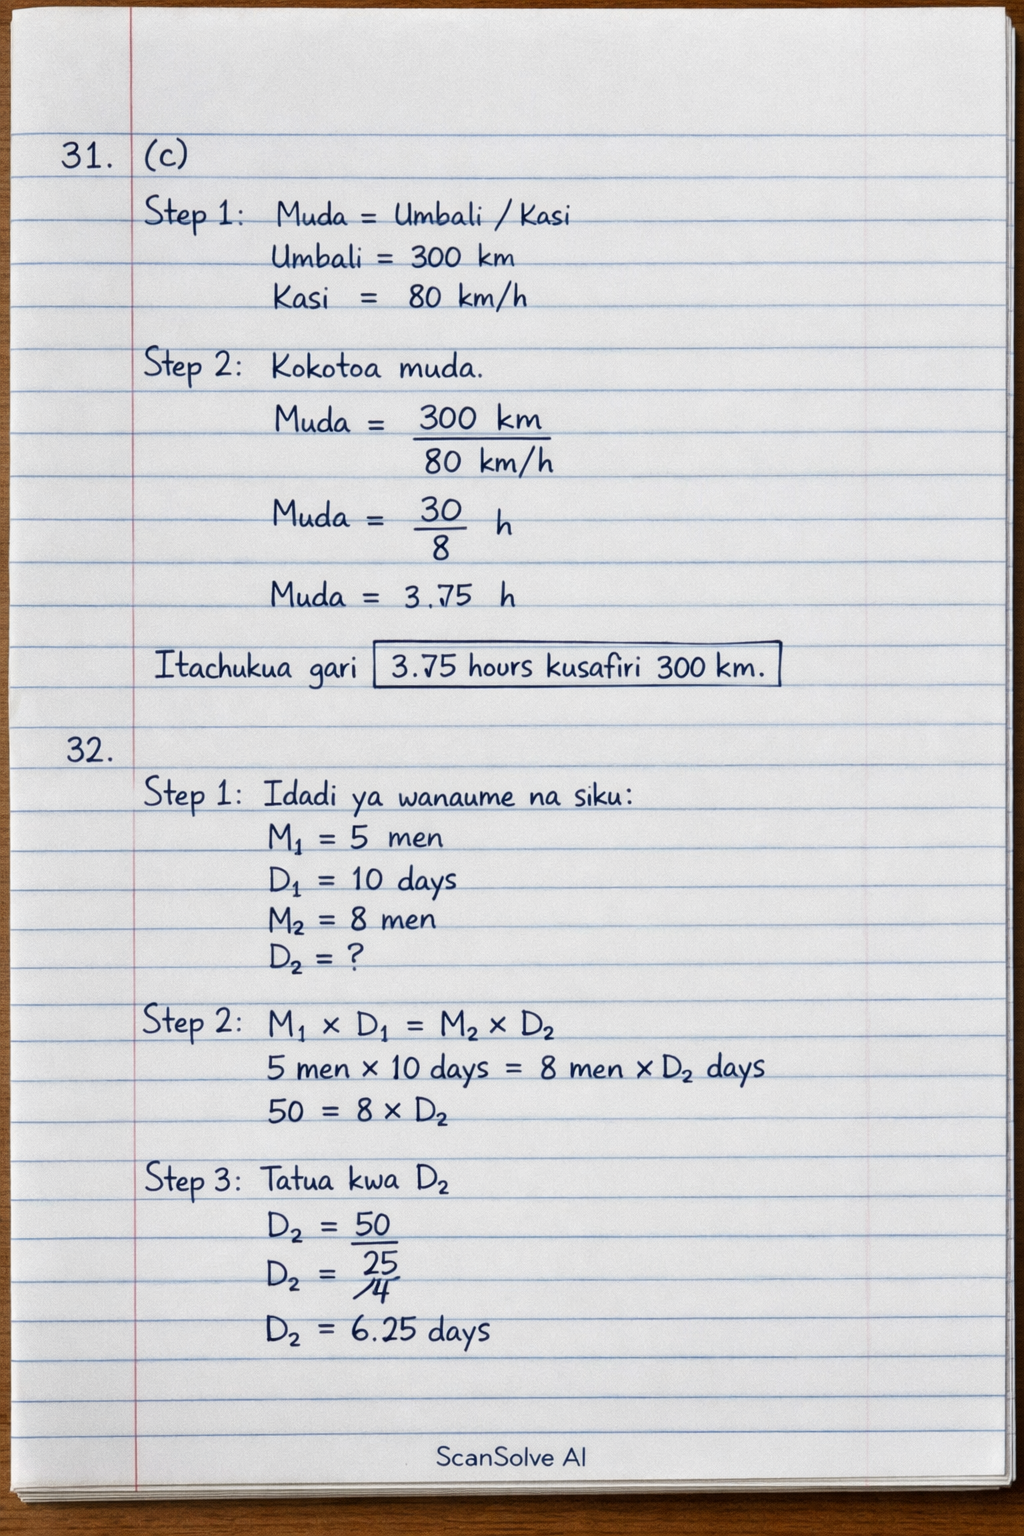 31. (c)
Step 1: Muda = Umbali / Kasi
Umbali = 300 km
Kasi = 80 km/h
Step 2: Kokotoa muda.
Muda = 300 km
80 km/h
Muda = 30 h
8
Muda = 3.75 h
Itachukua gari 3.75 hours kusafiri 300 km.
32.
Step 1: Idadi ya wanaume na siku:
M₁ = 5 men
D₁ = 10 days
M₂ = 8 men
D₂ = ?
Step 2: M₁ × D₁ = M₂ × D₂
5 men × 10 days = 8 men × D₂ days
50 = 8 × D₂
Step 3: Tatua kwa D₂
D₂ = 50
D₂ = 25
/4
D₂ = 6.25 days
ScanSolve AI